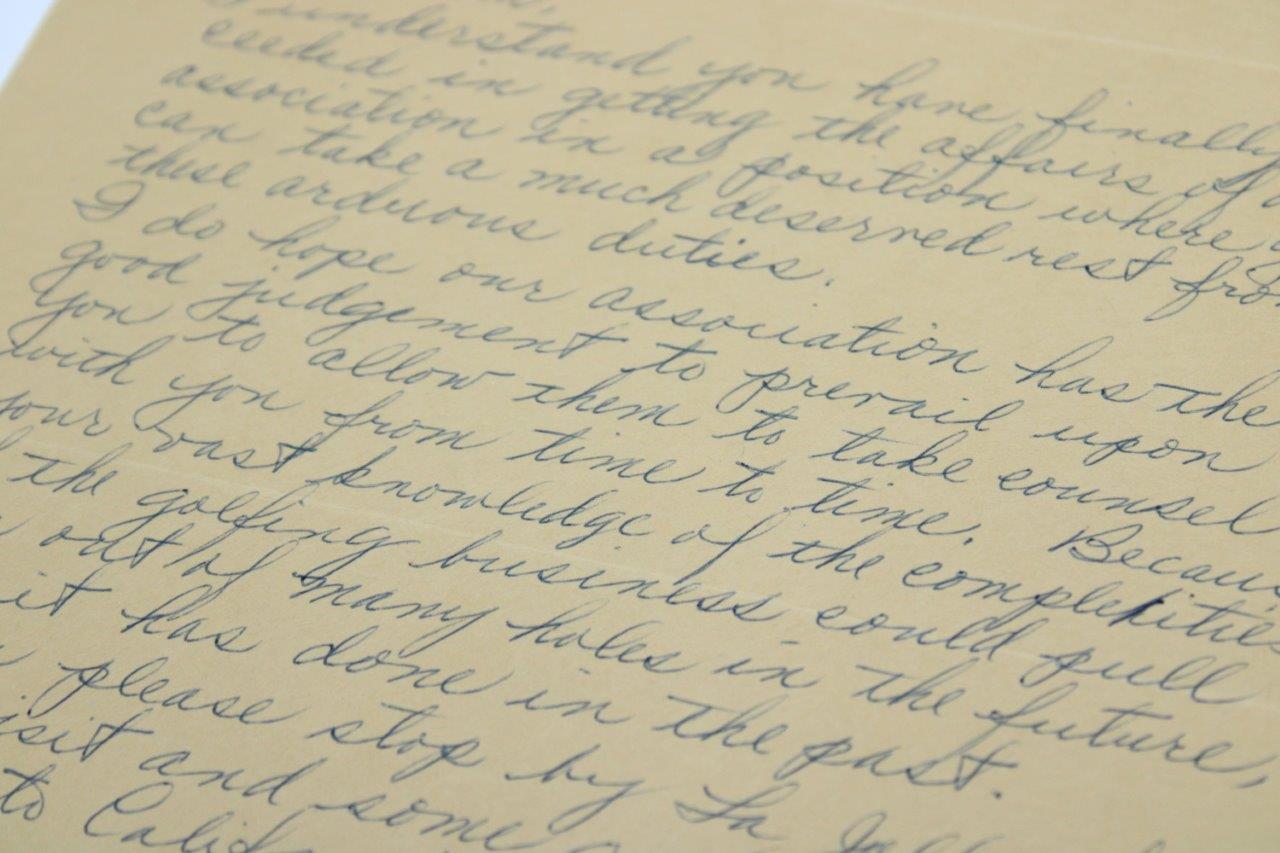 I understand you have finally
ceeded in getting the affairs of
association in a position where
can take a much deserved rest from
these arduous duties.
I do hope our association has the
good judgement to prevail upon
you to allow them to take counsel
with you from time to time. Becaus
your vast knowledge of the complexities
the golfing business could pull
out of many holes in the future,
it has done in the past.
please stop by La Joll
isit and some
to Calif